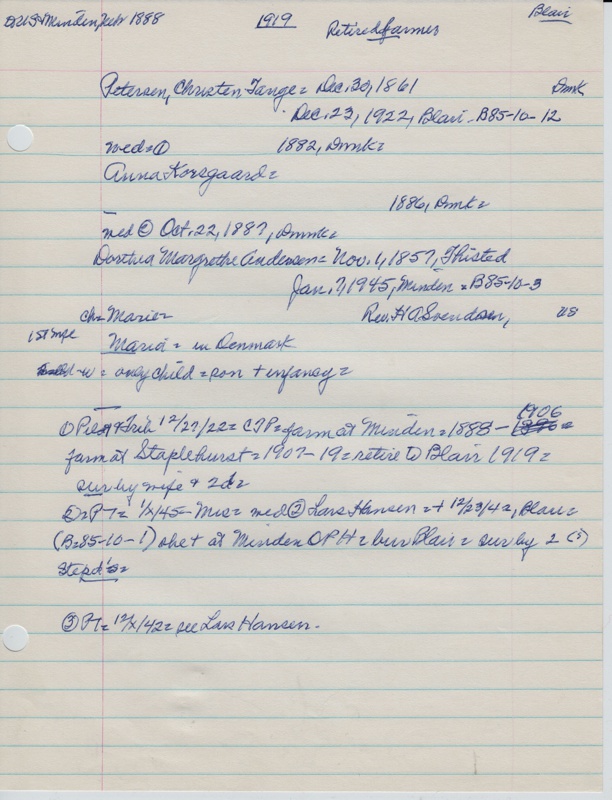 US + Minden, Nebr 1888 1919 Retired farmer Blair
Petersen, Christen Tange = Dec. 30, 1861 Dmk
Dec. 23, 1922, Blair - B85-10-12
med = ① 1882, Dmk =
Anna Korsgaard =
1886, Dmk =
med ② Oct. 22, 1887, Dmk =
Dorthea Margrethe Andersen = Nov. 1, 1857, Thisted
Jan. 7, 1945, Minden = B85-10-3
ch = Marie = Rev. H A Svendsen, US
1st wife Maria = in Denmark
w = only child = son + infancy =
① Pilot & Trib 12/27/22 = CTP = farm at Minden = 1888 - 1906
farm at Staplehurst = 1907-19 = retire to Blair 1919 =
sur by wife + 2d =
② = PT = 1/X/45 - Mrs = med ② Lars Hansen = + 12/23/42, Blair =
(B = 85-10-1) she + at Minden OPH = bur Blair = sur by 2 (s)
stepd's =
③ PT = 12/X/42 = see Lars Hansen -